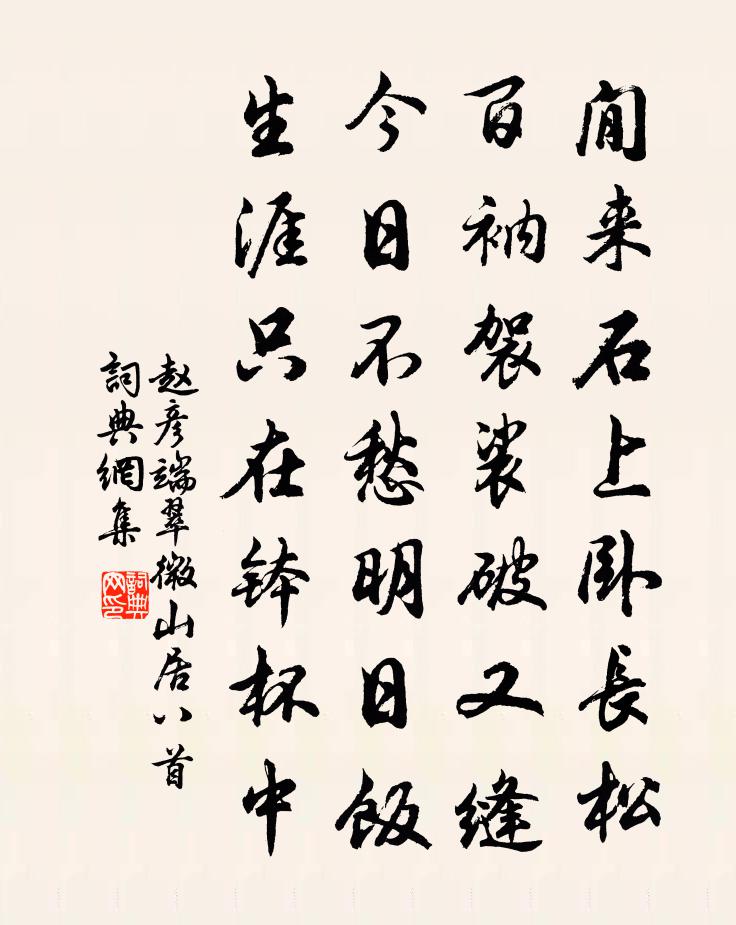 閒来石上卧長松
百衲袈裟破又縫
今日不愁明日飯
生涯只在鉢杯中
赵彦端翠微山居八首
詞典網集
詞典网印